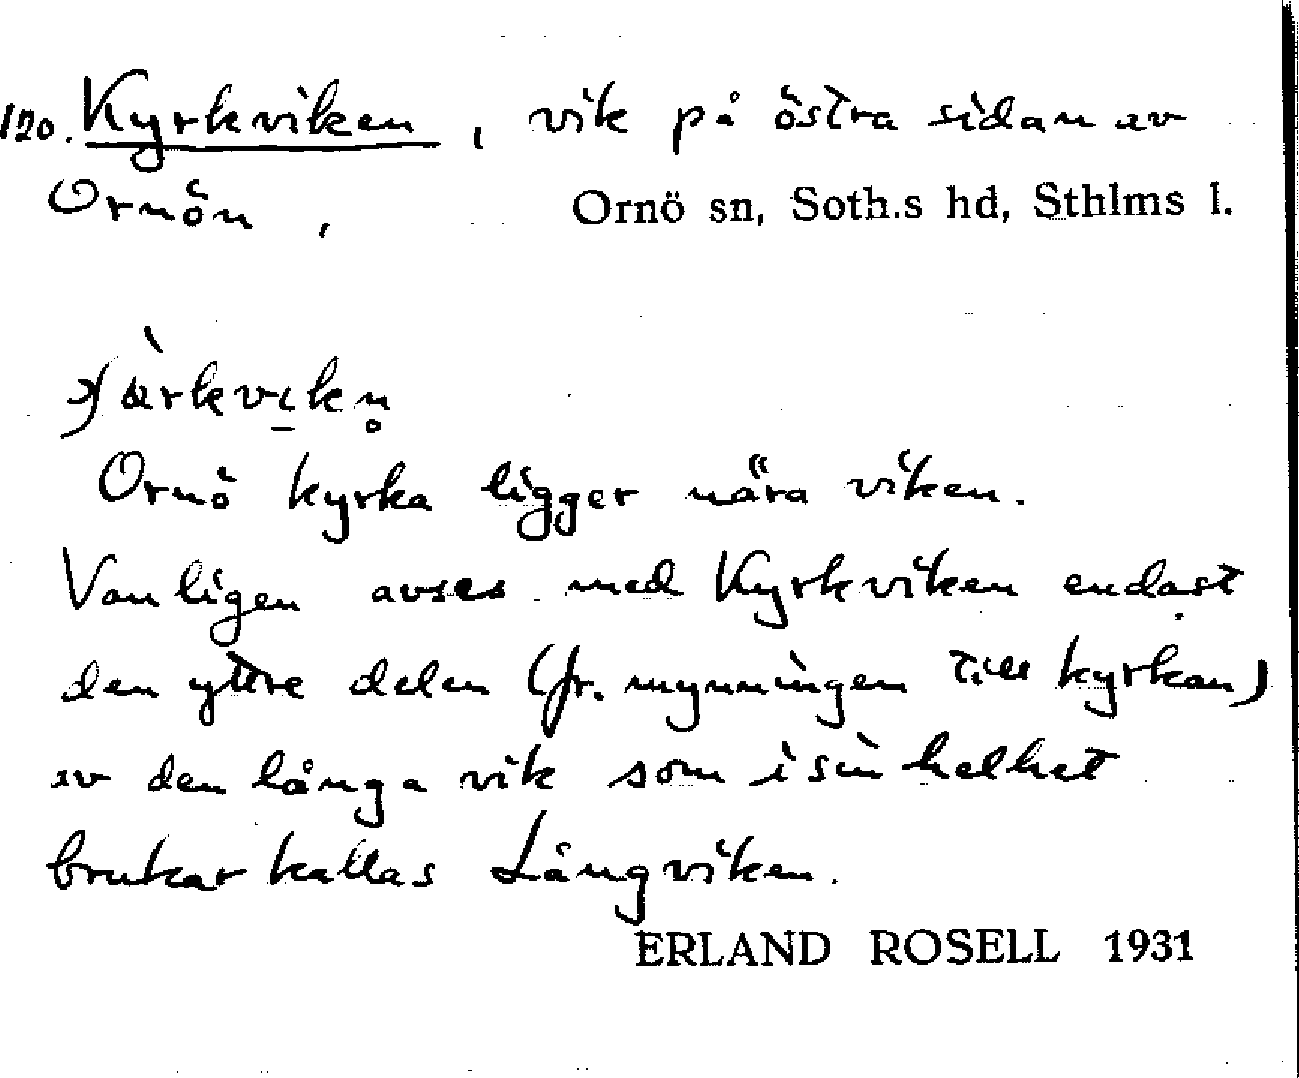 120. Kyrkviken, vik på östra sidan av
Ornön, Ornö sn, Soth.s hd, Sthlms l.
Ornö kyrka ligger nära viken.
Vanligen avses med Kyrkviken endast
den yttre delen (fr. mynningen till kyrkan)
av den långa vik som i sin helhet
brukar kallas Långviken.
ERLAND ROSELL 1931